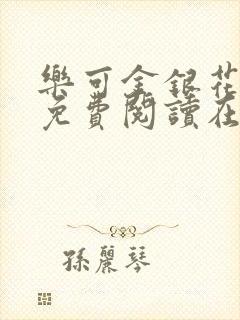 樂可金銀花
免費閱讀在
孫麗琴